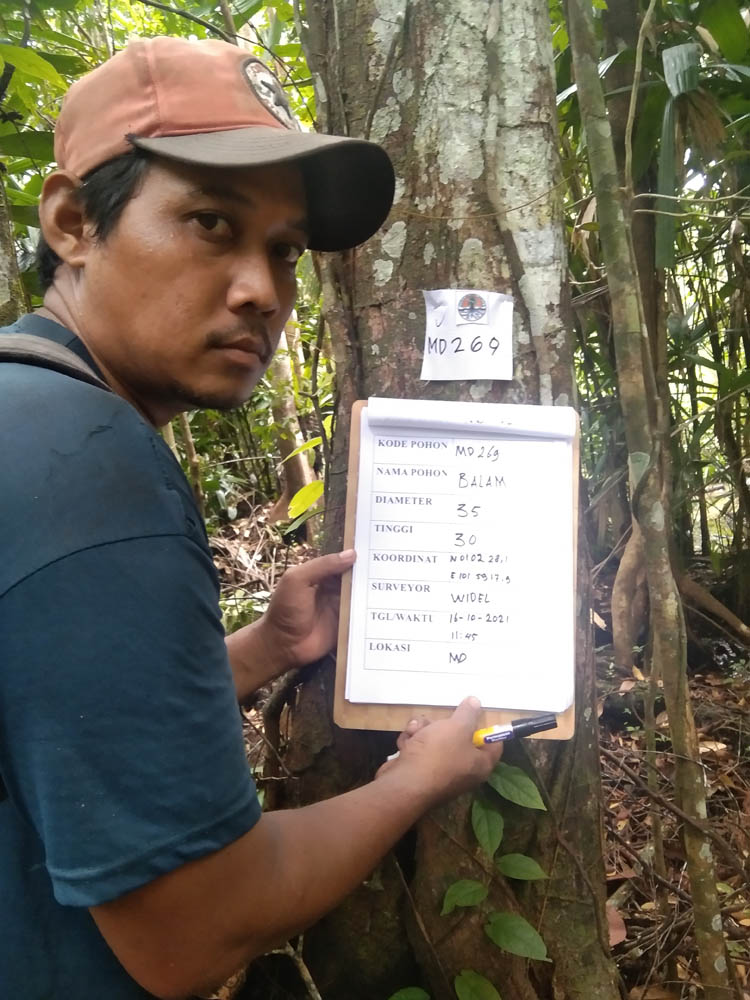 MD 269
KODE POHON MD 269
NAMA POHON BALAM
DIAMETER 35
TINGGI 30
KOORDINAT N 01 02 28,1
E 101 59 17.9
SURVEYOR WIDEL
TGL/WAKTU 16-10-2021
11:45
LOKASI MD